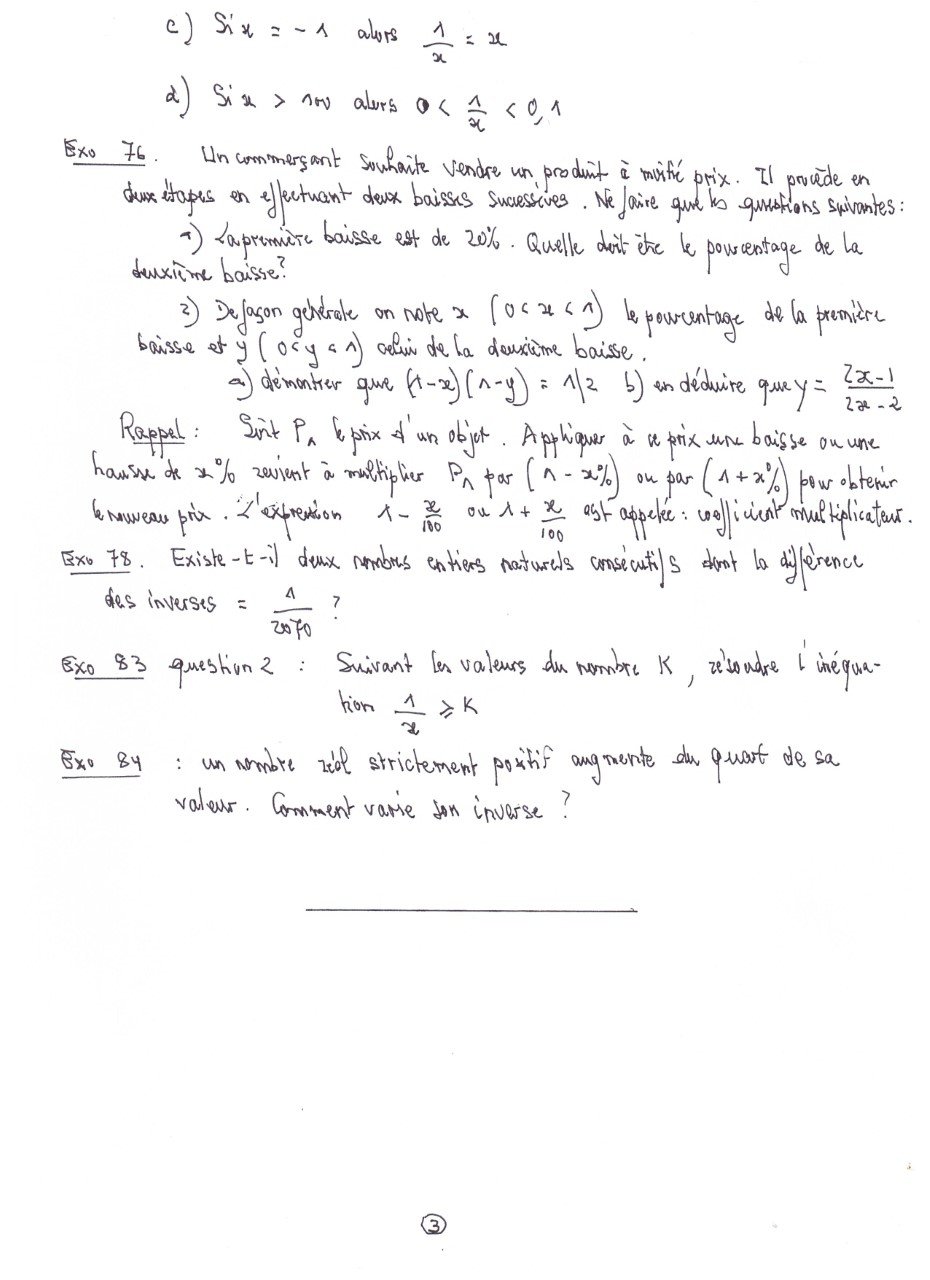 c) Si x = -1 alors 1/x = x
d) Si x > 100 alors 0 < 1/x < 0,1
Exo 76. Un commerçant souhaite vendre un produit à moitié prix. Il procède en
deux étapes en effectuant deux baisses successives. Ne faire que les questions suivantes :
1) La première baisse est de 20%. Quelle doit être le pourcentage de la
deuxième baisse?
2) De façon générale on note x (0 < x < 1) le pourcentage de la première
baisse et y (0 < y < 1) celui de la deuxième baisse.
a) démontrer que (1-x)(1-y) = 1/2 b) en déduire que y = (2x-1)/(2x-2)
Rappel : Soit P1 le prix d'un objet. Appliquer à ce prix une baisse ou une
hausse de x% revient à multiplier P1 par (1 - x%) ou par (1 + x%) pour obtenir
le nouveau prix. L'expression 1 - x/100 ou 1 + x/100 est appelée : coefficient multiplicateur.
Exo 78. Existe-t-il deux nombres entiers naturels consécutifs dont la différence
des inverses = 1/2070 ?
Exo 83 question 2 : Suivant les valeurs du nombre K, résoudre l'inéqua-
tion 1/x ⩾ K
Exo 84 : un nombre réel strictement positif augmente du quart de sa
valeur. Comment varie son inverse ?
3